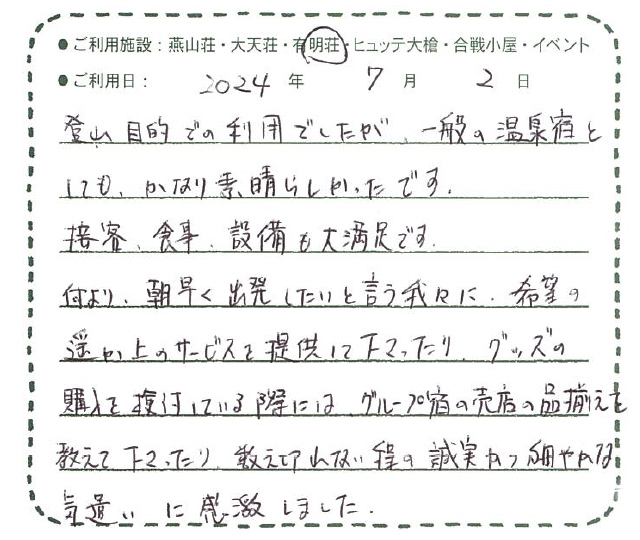 ●ご利用施設：燕山荘・大天荘・有明荘・ヒュッテ大槍・合戦小屋・イベント
●ご利用日： 2024 年 7 月 2 日
登山目的での利用でしたが、一般の温泉宿と
しても、かなり素晴らしかったです。
接客、食事、設備も大満足です。
何より、朝早く出発したいと言う我々に、希望の
遥か上のサービスを提供して下さったり、グッズの
購入を検討している際には、グループ宿の売店の品揃えを
教えて下さったり、数えきれない程の誠実かつ細やかな
気遣いに感激しました。